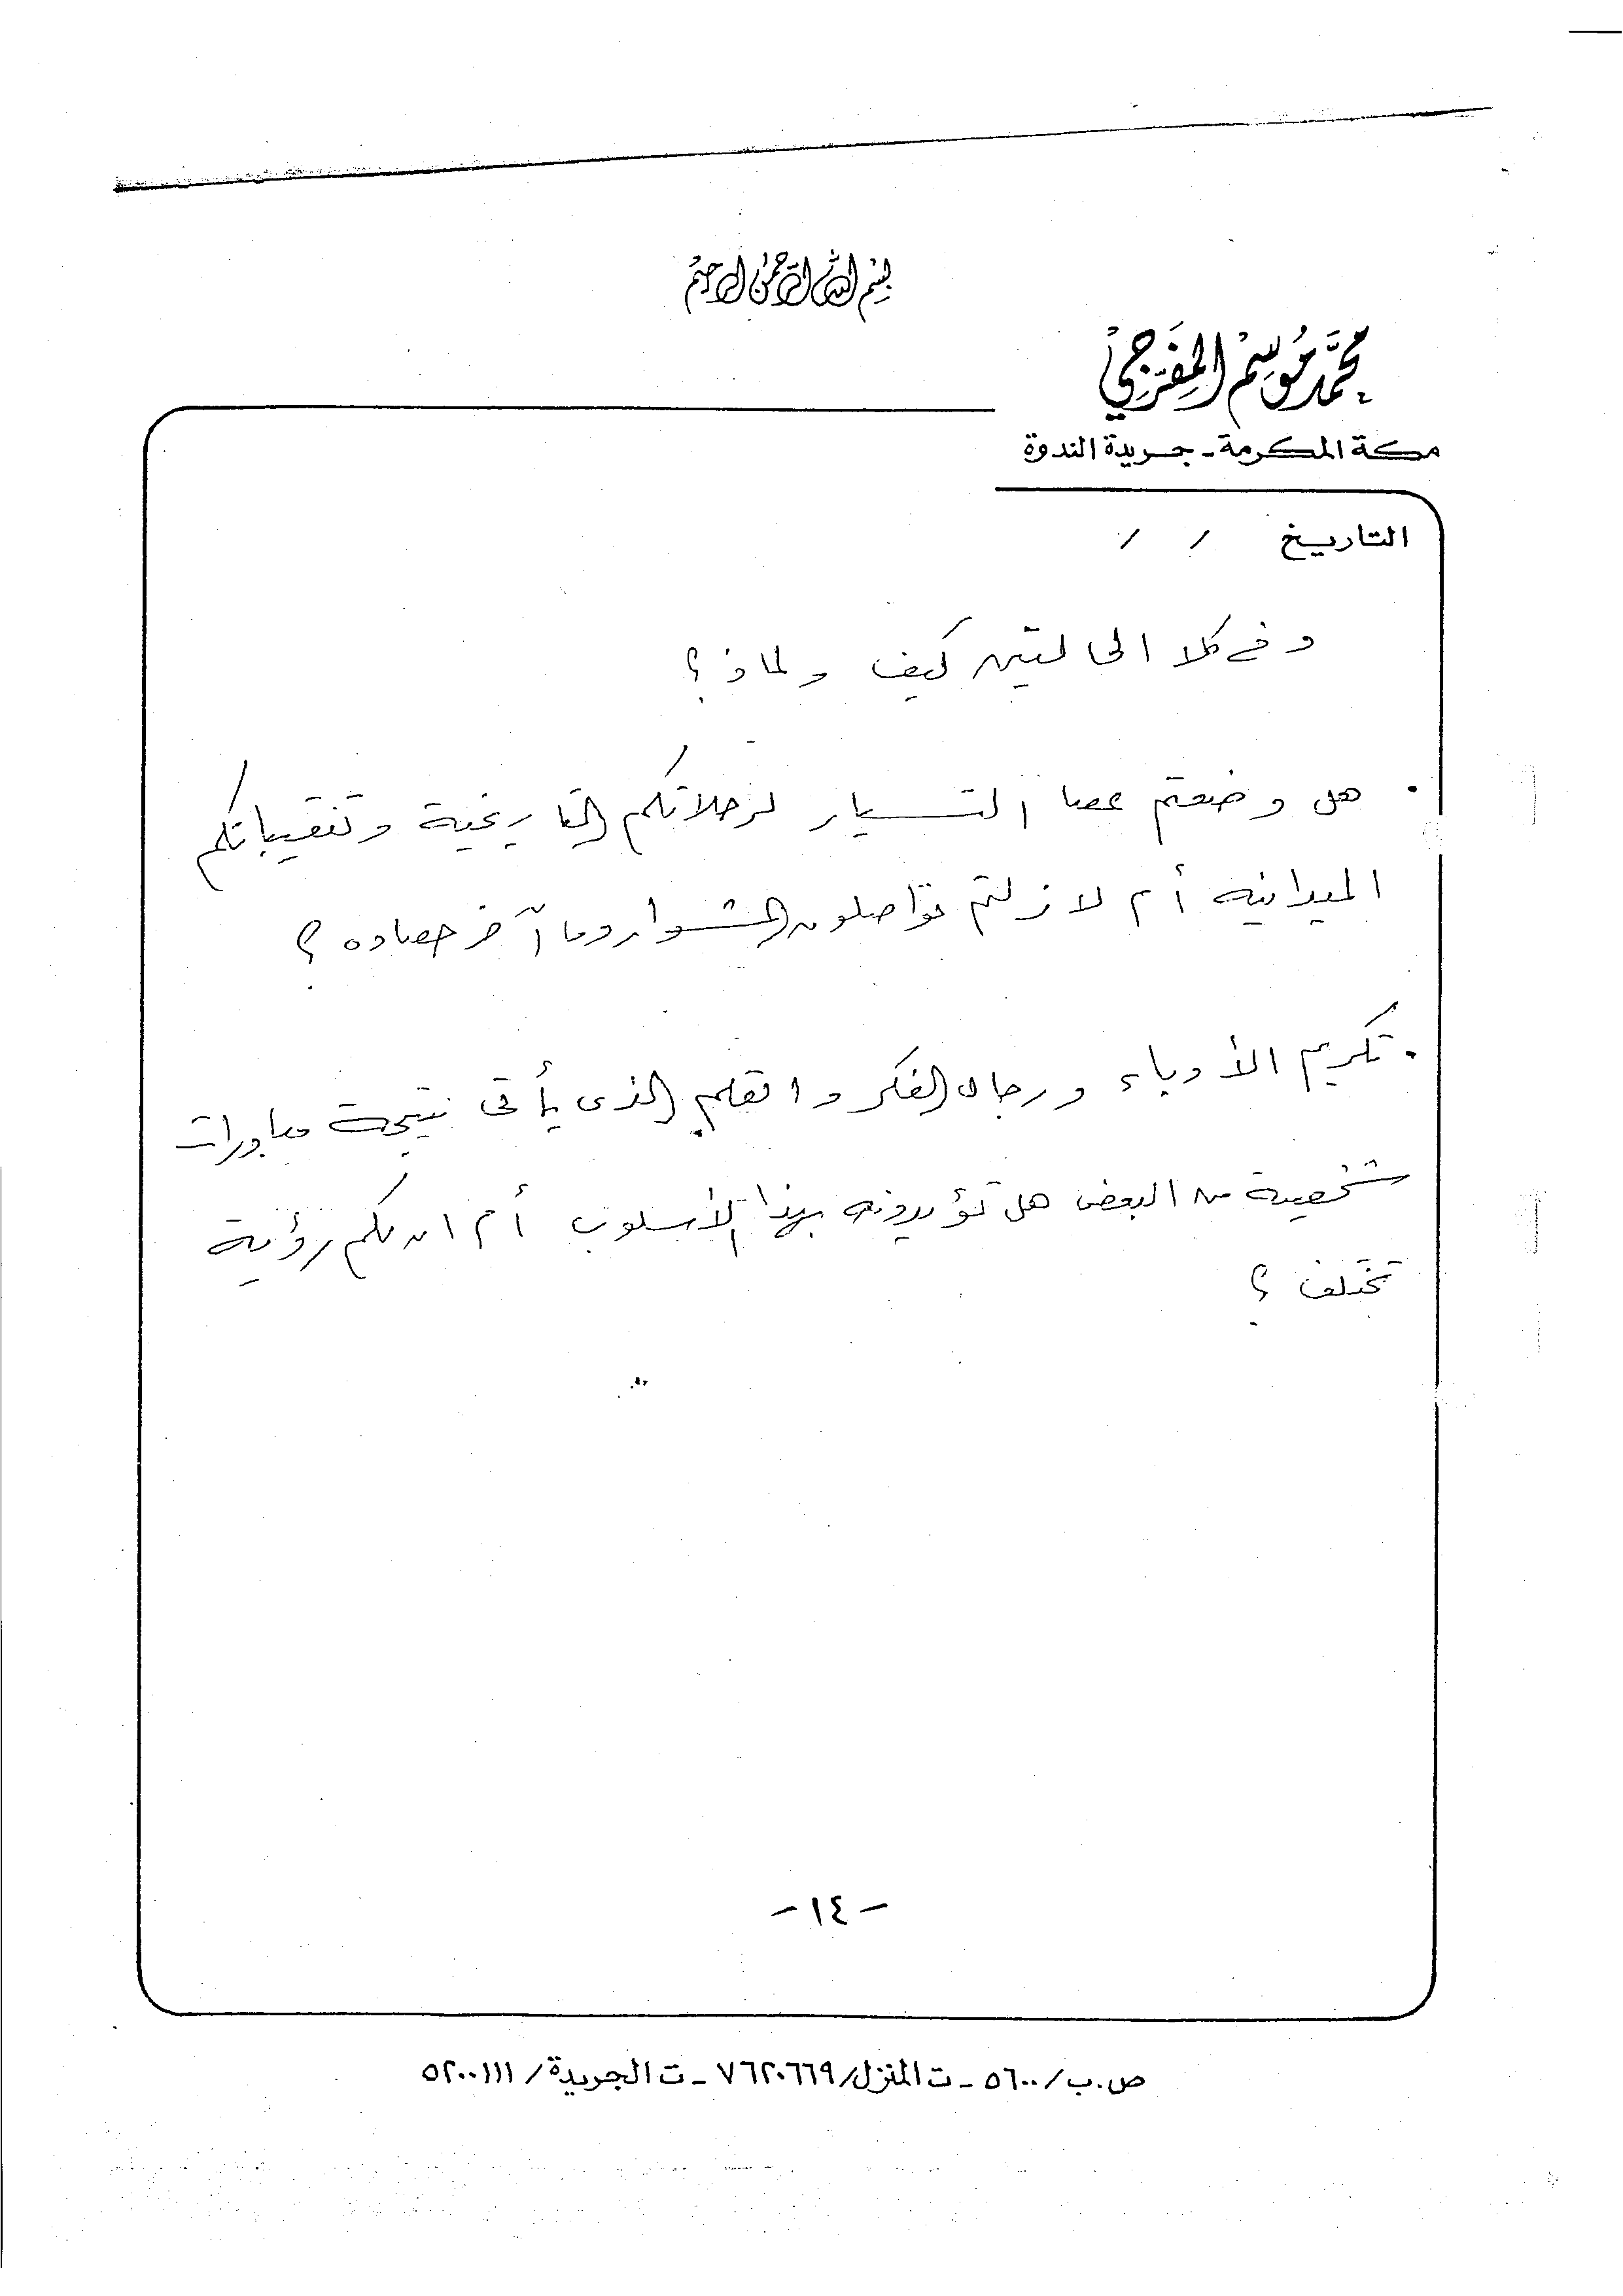 بسم الله الرحمن الرحيم
محمد موسم المفرجي
مكة المكرمة - جريدة الندوة
التاريخ / /
وفي كلا الحالتين كيف ولماذ؟
• هل وضعتم عصا التسيار لرحلاتكم التاريخية وتنقيباتكم
الميدانية أم لازلتم تواصلون المشوار وما آخر حصاده؟
• تكريم الأدباء ورجال الفكر والقلم الذي يأتي نتيجة مبادرات
شخصية من البعض هل تؤيدونه بهذا الأسلوب أم ان لكم رؤية
تختلف؟
- ١٤ -
ص.ب/ ٥٦٠٠ - ت المنزل/ ٧٦٢٠٦٦٩ - ت الجريدة/ ٥٢٠٠١١١